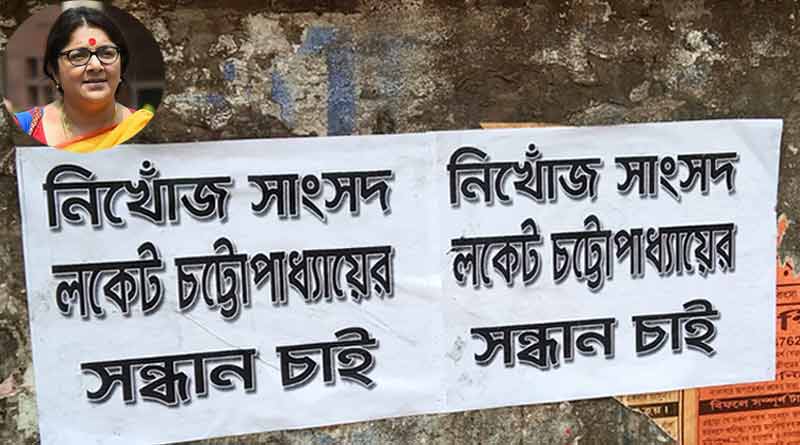 নিখোঁজ সাংসদ
লকেট চট্টোপাধ্যায়ের
সন্ধান চাই
নিখোঁজ সাংসদ
লকেট চট্টোপাধ্যায়ের
সন্ধান চাই
বিফলে সম্পূর্ণ